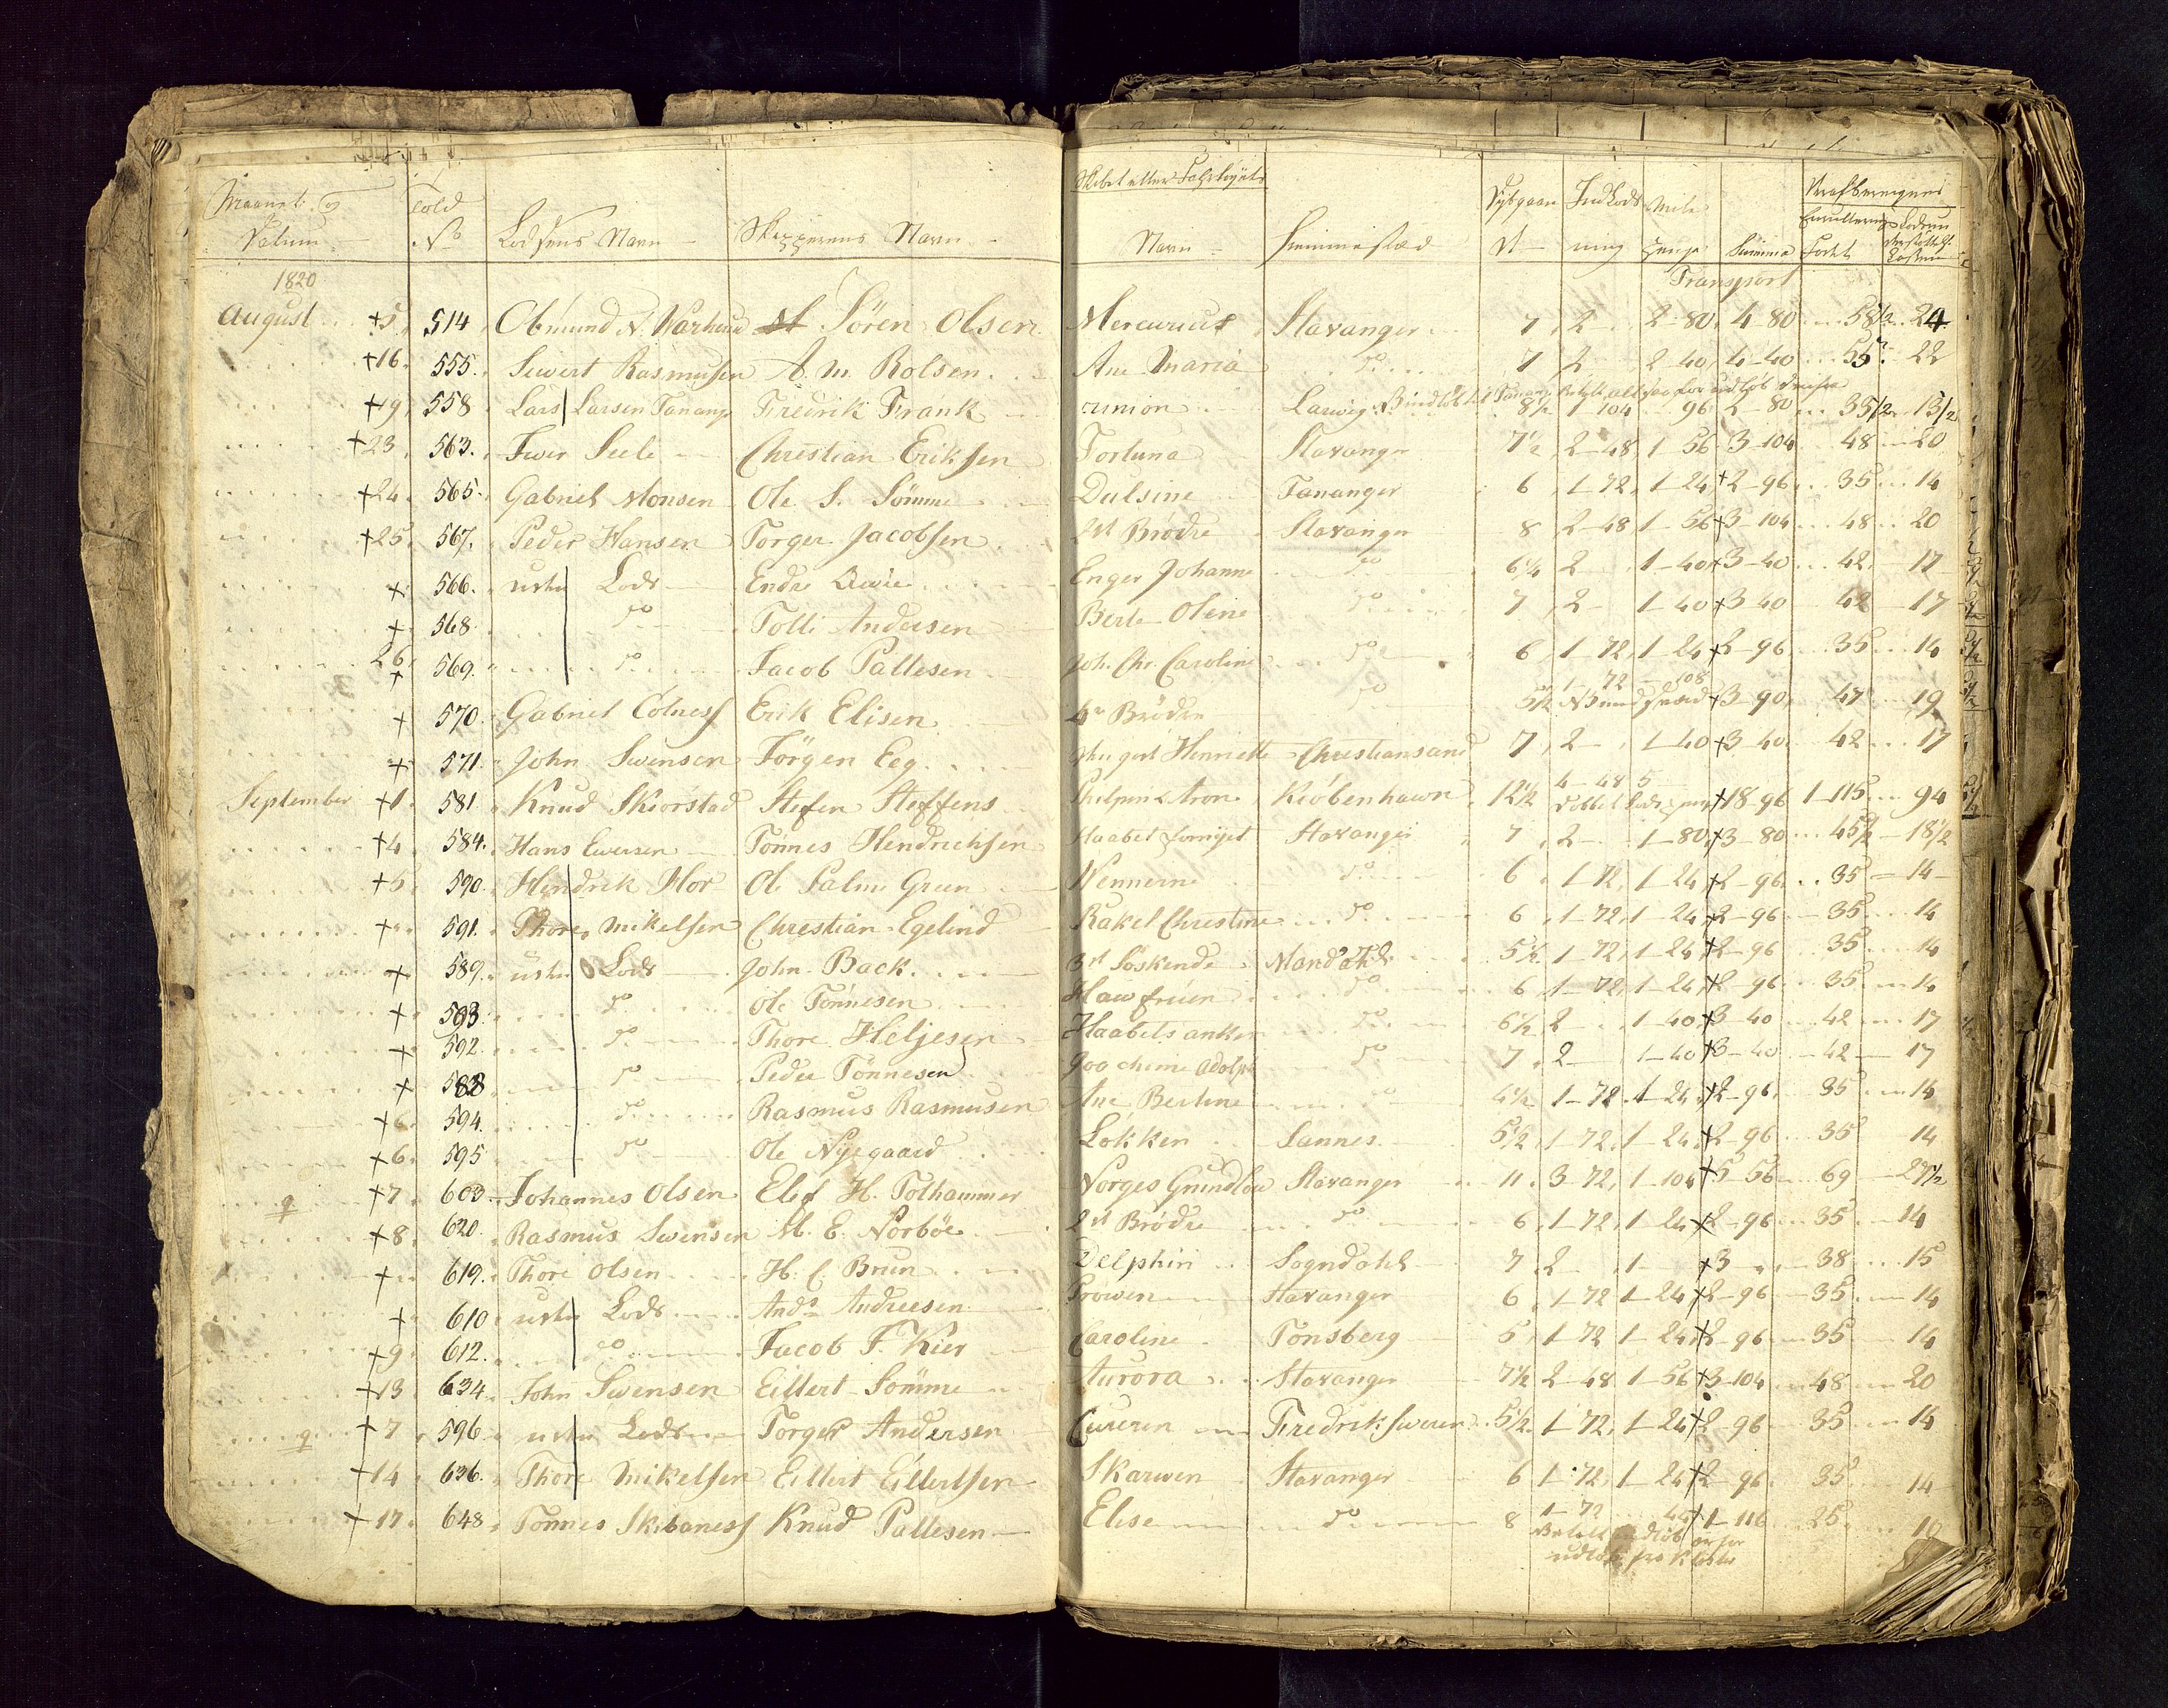 Maanet og Datum Told No Lodsens Navn Skipperens Navn
1820
August 5 514 Obmund N. Warhaud Sören Olsen
16 555 Siwert Rasmusen A. M. Rolsen
19 558 Lars Larsen Tanang Fredrik Frank
23 563 Iwer Seele Christian Eriksen
24 565 Gabriel Monsen Ole S. Sömme
25 567 Peder Hansen Torger Jacobsen
566 Lods Endre
568 do Tolli Andersen
26 569 do Jacob Pallesen
570 Gabriel Colness Erik Elisen
571 John Swensen Jörgen Eeg
September 1 581 Knud Skiorstad Stefen Steffens
4 584 Hans Ewersen Tönnes Hendrichsen
5 590 Hendrik Hor Ole Palm Green
591 Thore Mikelsen Christian Egelind
589 Lods John Back
593 do Ole Tönnesen
592 do Thore Heljesen
588 do Peder Tönnesen
6 594 do Rasmus Rasmusen
6 595 do Ole Nygaard
7 603 Johannes Olsen Elef H. Tolhammer
8 620 Rasmus Swensen M. E. Norböe
619 Thore Olsen H. C. Brun
610 Lods Andr Andreesen
9 612 do Jacob F. Kier
13 634 John Swensen Eillert Sömme
7 596 Lods Torger Andersen
14 636 Thore Mikelsen Eillert Eillertsen
17 648 Tönnes Skibaness Knud Pallesen
Skibet eller Fahrtöyets
Navn Hiemmestæd Dybgaaende Indlodsning Mile Penge Summa
Transport
Mercurius Stavanger 7 2 2-80 4-80 58½ 24
Ane Maria do 7 2 2-40 4-40 55 22
union Larwig 8½ 1-104 96 2-80 35½ 13½
Fortuna Stavanger 7½ 2-48 1-56 3-104 48 20
Dulsine Tananger 6 1-72 1-24 2-96 35 14
2de Brödre Stavanger 8 2-48 1-56 3-104 48 20
Enger Johanne do 6¼ 2 1-40 3-40 42 17
Berte Oline do 7 2 1-40 3 40 42 17
Joh. Chr. Caroline do 6 1-72 1-24 2-96 35 14
4re Brödre do 5½ 1-72 108 3-90 47 19
Henriette Christiansand 7 2 1-40 3 40 42 17
Kiöbenhawn 12½ 4-48 5 18-96 1-115 94
Haabet Stavanger 7 2 1-80 3-80 45½ 18½
Wennerne do 6 1-72 1-24 2-96 35 14
Rakel Christine do 6 1-72 1-24 2-96 35 14
3de Söskende Mandahl 5½ 1-72 1-24 2-96 35 14
Hawfruen do 6 1-72 1-24 2-96 35 14
Haabets anker do 6½ 2 1-40 3 40 42 17
Joachime Adolph do 7 2 1-40 3-40 42 17
Ane Bertine do 4½ 1-72 1-24 2-96 35 14
Lokken Sannes 5½ 1-72 1-24 2-96 35 14
Norges Grundlow Stavanger 11 3-72 1-104 5 56 69 27½
2de Brödre do 6 1-72 1-24 2-96 35 14
Delphin Sogndahl 7 2 1 3 38 15
Pröwen Stavanger 6 1-72 1-24 2-96 35 14
Caroline Tonsberg 5 1-72 1-24 2-96 35 14
Aurora Stavanger 7½ 2-48 1-56 3-104 48 20
5½ 1-72 1-24 2-96 35 14
Skarwen Stavanger 6 1-72 1-24 2-96 35 14
Elise do 8 1-72 44 1-116 25 10